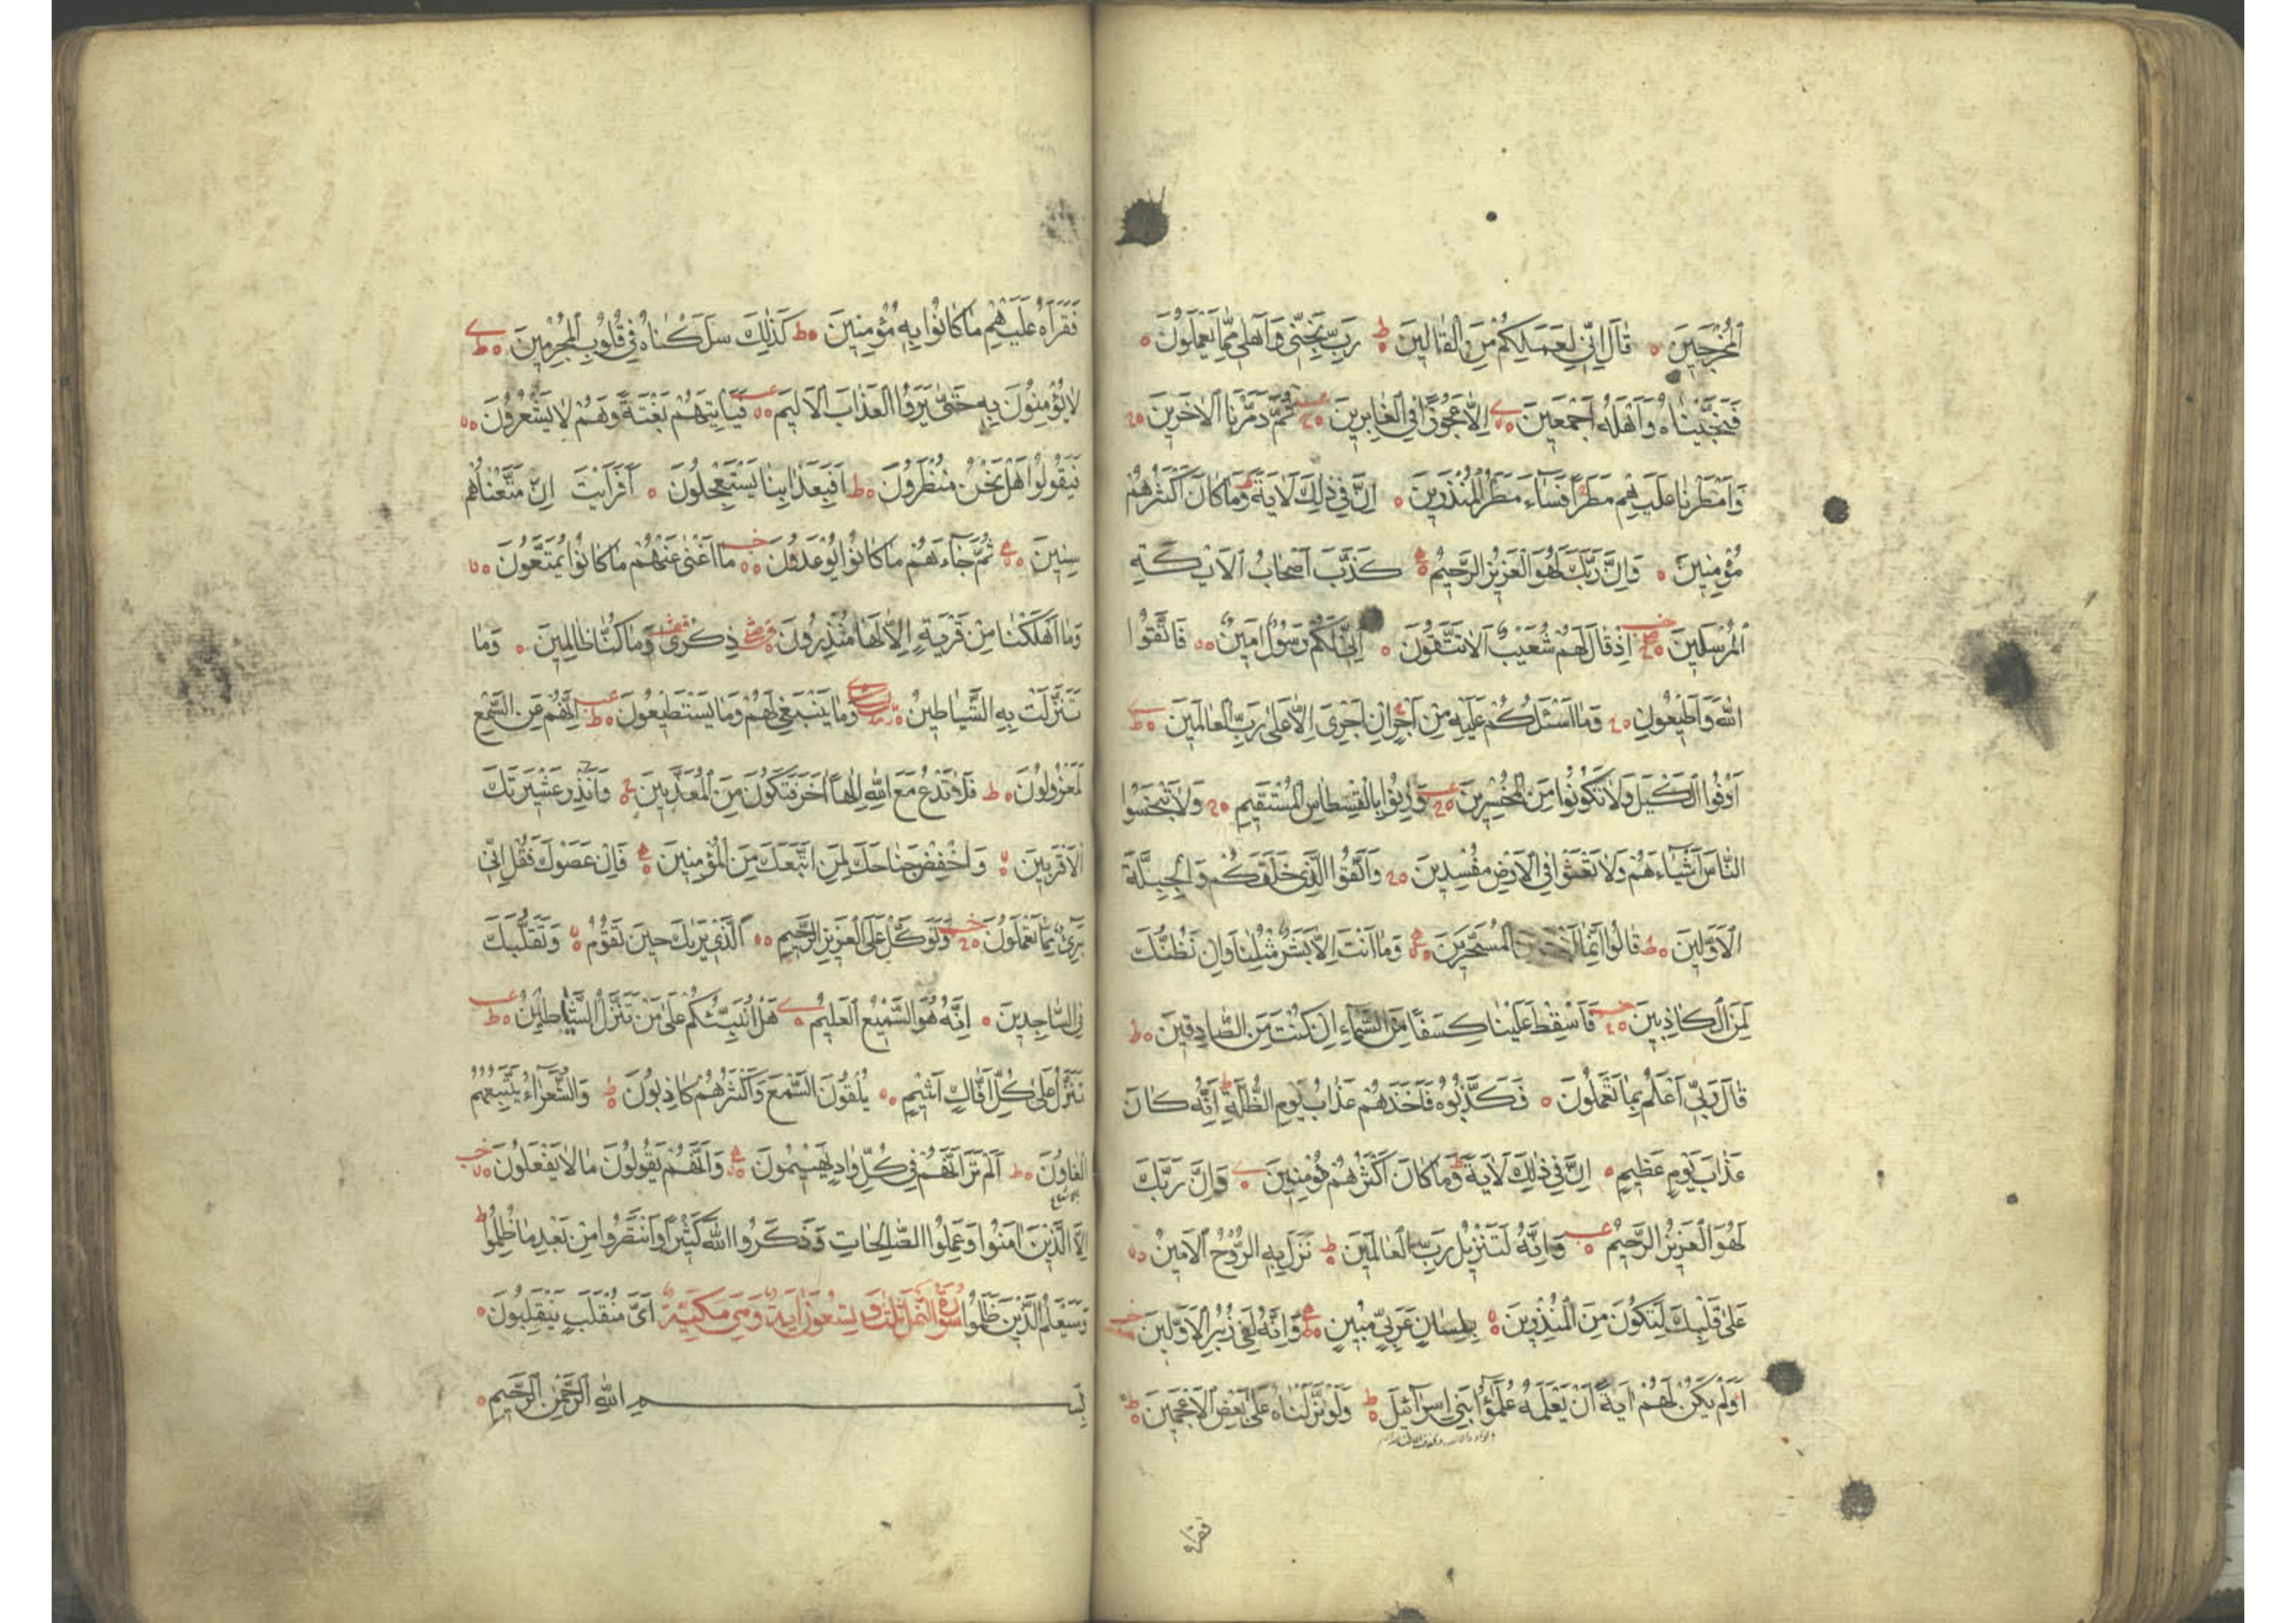 اَلْمُخْرَجِينَ ۝ قَالَ اِنِّي لِعَمَلِكُمْ مِنَ الْقَالِينَ ۝ ط رَبِّ نَجِّنِي وَاَهْلِي مِمَّا يَعْمَلُونَ ۝
فَنَجَّيْنَاهُ وَاَهْلَهُ اَجْمَعِينَ ۝ اِلَّا عَجُوزًا فِي الْغَابِرِينَ ۝ ثُمَّ دَمَّرْنَا الْاٰخَرِينَ ۝
وَاَمْطَرْنَا عَلَيْهِمْ مَطَرًا فَسَاءَ مَطَرُ الْمُنْذَرِينَ ۝ اِنَّ فِي ذٰلِكَ لَاٰيَةً وَمَا كَانَ اَكْثَرُهُمْ
مُؤْمِنِينَ ۝ وَاِنَّ رَبَّكَ لَهُوَ الْعَزِيزُ الرَّحِيمُ ۝ كَذَّبَ اَصْحَابُ الْاَيْكَةِ
الْمُرْسَلِينَ ۝ اِذْ قَالَ لَهُمْ شُعَيْبٌ اَلَا تَتَّقُونَ ۝ اِنِّي لَكُمْ رَسُولٌ اَمِينٌ ۝ فَاتَّقُوا
اللّٰهَ وَاَطِيعُونِ ۝ وَمَا اَسْئَلُكُمْ عَلَيْهِ مِنْ اَجْرٍ اِنْ اَجْرِيَ اِلَّا عَلٰى رَبِّ الْعَالَمِينَ ۝ ط
اَوْفُوا الْكَيْلَ وَلَا تَكُونُوا مِنَ الْمُخْسِرِينَ ۝ وَزِنُوا بِالْقِسْطَاسِ الْمُسْتَقِيمِ ۝ وَلَا تَبْخَسُوا
النَّاسَ اَشْيَاءَهُمْ وَلَا تَعْثَوْا فِي الْاَرْضِ مُفْسِدِينَ ۝ وَاتَّقُوا الَّذِي خَلَقَكُمْ وَالْجِبِلَّةَ
الْاَوَّلِينَ ۝ ط قَالُوا اِنَّمَا اَنْتَ مِنَ الْمُسَحَّرِينَ ۝ وَمَا اَنْتَ اِلَّا بَشَرٌ مِثْلُنَا وَاِنْ نَظُنُّكَ
لَمِنَ الْكَاذِبِينَ ۝ فَاَسْقِطْ عَلَيْنَا كِسَفًا مِنَ السَّمَاءِ اِنْ كُنْتَ مِنَ الصَّادِقِينَ ۝ ط
قَالَ رَبِّي اَعْلَمُ بِمَا تَعْمَلُونَ ۝ فَكَذَّبُوهُ فَاَخَذَهُمْ عَذَابُ يَوْمِ الظُّلَّةِ ط اِنَّهُ كَانَ
عَذَابَ يَوْمٍ عَظِيمٍ ۝ اِنَّ فِي ذٰلِكَ لَاٰيَةً ط وَمَا كَانَ اَكْثَرُهُمْ مُؤْمِنِينَ ۝ وَاِنَّ رَبَّكَ
لَهُوَ الْعَزِيزُ الرَّحِيمُ ۝ وَاِنَّهُ لَتَنْزِيلُ رَبِّ الْعَالَمِينَ ۝ ط نَزَلَ بِهِ الرُّوحُ الْاَمِينُ ۝
عَلٰى قَلْبِكَ لِتَكُونَ مِنَ الْمُنْذِرِينَ ۝ بِلِسَانٍ عَرَبِيٍّ مُبِينٍ ۝ ط وَاِنَّهُ لَفِي زُبُرِ الْاَوَّلِينَ
اَوَلَمْ يَكُنْ لَهُمْ اٰيَةً اَنْ يَعْلَمَهُ عُلَمٰؤُا بَنِي اِسْرَائِيلَ ۝ ط وَلَوْ نَزَّلْنَاهُ عَلٰى بَعْضِ الْاَعْجَمِينَ ۝ ط
فقراه
فَقَرَاَهُ عَلَيْهِمْ مَا كَانُوا بِهِ مُؤْمِنِينَ ۝ ط كَذٰلِكَ سَلَكْنَاهُ فِي قُلُوبِ الْمُجْرِمِينَ ۝ ط
لَا يُؤْمِنُونَ بِهِ حَتّٰى يَرَوُا الْعَذَابَ الْاَلِيمَ ۝ فَيَاْتِيَهُمْ بَغْتَةً وَهُمْ لَا يَشْعُرُونَ ۝
فَيَقُولُوا هَلْ نَحْنُ مُنْظَرُونَ ۝ ط اَفَبِعَذَابِنَا يَسْتَعْجِلُونَ ۝ اَفَرَاَيْتَ اِنْ مَتَّعْنَاهُمْ
سِنِينَ ۝ ثُمَّ جَاءَهُمْ مَا كَانُوا يُوعَدُونَ ۝ مَا اَغْنٰى عَنْهُمْ مَا كَانُوا يُمَتَّعُونَ ۝
وَمَا اَهْلَكْنَا مِنْ قَرْيَةٍ اِلَّا لَهَا مُنْذِرُونَ ۝ ذِكْرٰى وَمَا كُنَّا ظَالِمِينَ ۝ وَمَا
تَنَزَّلَتْ بِهِ الشَّيَاطِينُ ۝ وَمَا يَنْبَغِي لَهُمْ وَمَا يَسْتَطِيعُونَ ۝ ط اِنَّهُمْ عَنِ السَّمْعِ
لَمَعْزُولُونَ ۝ ط فَلَا تَدْعُ مَعَ اللّٰهِ اِلٰهًا اٰخَرَ فَتَكُونَ مِنَ الْمُعَذَّبِينَ ۝ وَاَنْذِرْ عَشِيرَتَكَ
الْاَقْرَبِينَ ۝ وَاخْفِضْ جَنَاحَكَ لِمَنِ اتَّبَعَكَ مِنَ الْمُؤْمِنِينَ ۝ فَاِنْ عَصَوْكَ فَقُلْ اِنِّي
بَرِيءٌ مِمَّا تَعْمَلُونَ ۝ وَتَوَكَّلْ عَلَى الْعَزِيزِ الرَّحِيمِ ۝ اَلَّذِي يَرٰيكَ حِينَ تَقُومُ ۝ وَتَقَلُّبَكَ
فِي السَّاجِدِينَ ۝ اِنَّهُ هُوَ السَّمِيعُ الْعَلِيمُ ۝ هَلْ اُنَبِّئُكُمْ عَلٰى مَنْ تَنَزَّلُ الشَّيَاطِينُ ۝ ط
تَنَزَّلُ عَلٰى كُلِّ اَفَّاكٍ اَثِيمٍ ۝ يُلْقُونَ السَّمْعَ وَاَكْثَرُهُمْ كَاذِبُونَ ۝ ط وَالشُّعَرَاءُ يَتَّبِعُهُمُ
الْغَاوُنَ ۝ ط اَلَمْ تَرَ اَنَّهُمْ فِي كُلِّ وَادٍ يَهِيمُونَ ۝ وَاَنَّهُمْ يَقُولُونَ مَا لَا يَفْعَلُونَ ۝
اِلَّا الَّذِينَ اٰمَنُوا وَعَمِلُوا الصَّالِحَاتِ وَذَكَرُوا اللّٰهَ كَثِيرًا وَانْتَصَرُوا مِنْ بَعْدِ مَا ظُلِمُوا ط
وَسَيَعْلَمُ الَّذِينَ ظَلَمُوا سورة النمل ثلث وتسعون اية وهي مكية اَيَّ مُنْقَلَبٍ يَنْقَلِبُونَ ۝
بِسْمِ اللّٰهِ الرَّحْمٰنِ الرَّحِيمِ ۝